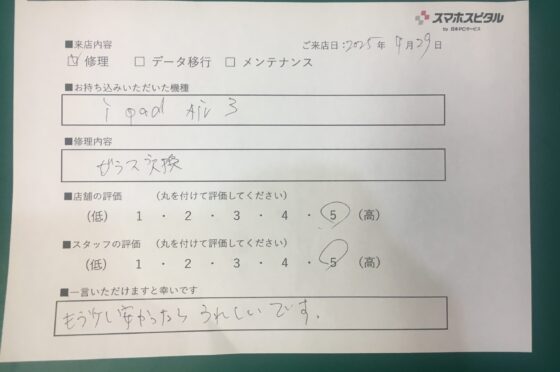 スマホスピタル
by 日本PCサービス
■来店内容
ご来店日：2025年 9月29日
☑ 修理 □ データ移行 □ メンテナンス
■お持ち込みいただいた機種
i pad Air 3
■修理内容
ガラス交換
■店舗の評価 （丸を付けて評価してください）
（低） 1 ・ 2 ・ 3 ・ 4 ・ 5 （高）
■スタッフの評価 （丸を付けて評価してください）
（低） 1 ・ 2 ・ 3 ・ 4 ・ 5 （高）
■一言いただけますと幸いです
もう少し安かったらうれしいです.